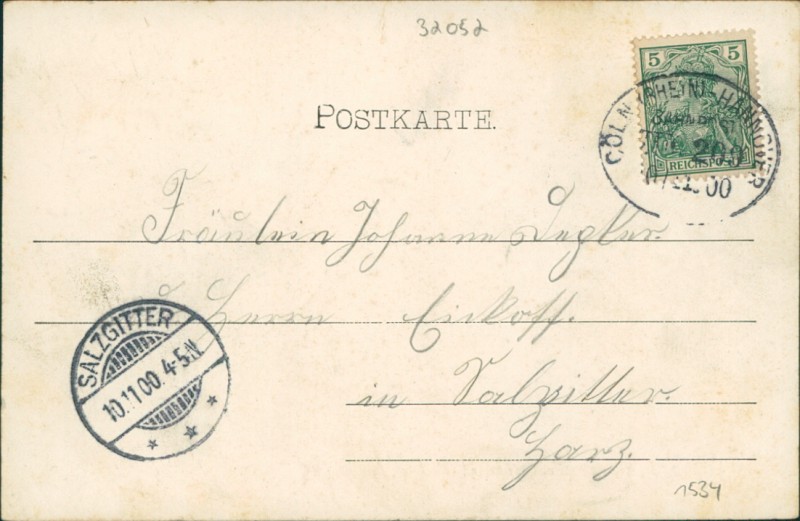 32052
5 5
REICHSPOST
CÖLN (RHEIN) - HANNOVER
BAHNPOST
11.00
POSTKARTE.
Fräulein Johanne
Herrn Eickoff.
in Salzgitter.
Harz.
SALZGITTER
10.11.00. 4-5.N.
1534